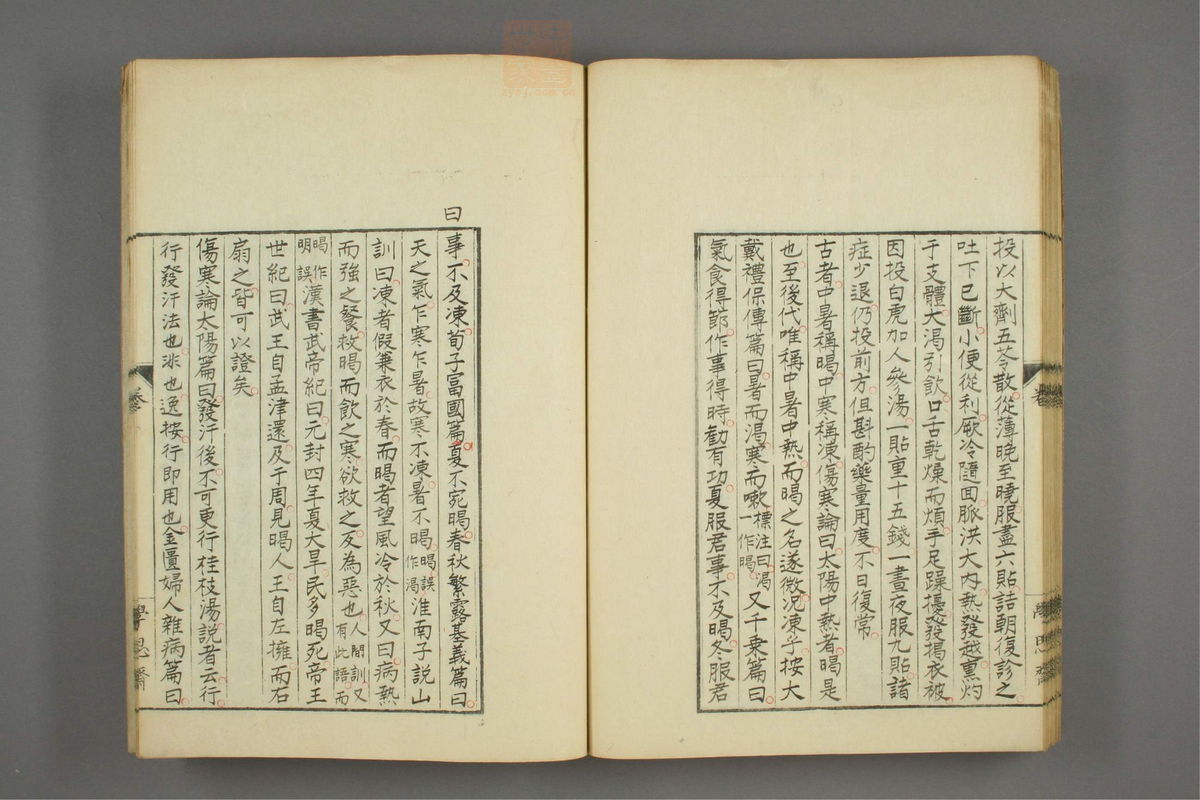 投以大劑五苓散從薄晚至曉服盡六貼詰朝復診之
吐下已斷小便從利厥冷隨回脈洪大內熱發越熏灼
于支體大渴引飲口舌乾燥而煩手足躁擾發揭衣被
因投白虎加人參湯一貼重十五錢一晝夜服九貼諸
症少退仍投前方但斟酌藥量用度不日復常
古者中暑稱暍中寒稱凍傷寒論曰太陽中熱者暍是
也至後代唯稱中暑中熱而暍之名遂微況凍乎按大
戴禮保傅篇曰暑而渴寒而嗽標注曰渴一作暍又千乘篇曰
氣食得節作事得時勸有功夏服君事不及暍冬服君
事不及凍荀子富國篇夏不宛暍春秋繁露基義篇曰
曰
天之氣乍寒乍暑故寒不凍暑不暍暍誤作渴淮南子說山
訓曰凍者假兼衣於春而暍者望風冷於秋又曰病熱
而強之餐救暍而飲之寒欲救之反為惡也人間訓又有此語而
暍作明誤漢書武帝紀曰元封四年夏大旱民多暍死帝王
世紀曰武王自孟津還及于周見暍人王自左擁而右
扇之皆可以證矣
傷寒論太陽篇曰發汗後不可更行桂枝湯說者云行
行發汗法也非也逸按行即用也金匱婦人雜病篇曰
卷
學思齋
zysj.com.cn